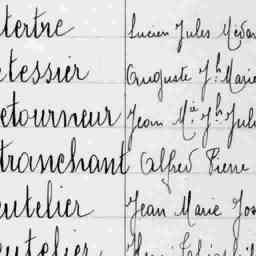 tertre Lucien Jules Médar
etessier Auguste Jh Marie
etourneur Jean Mie Jh Juli
tranchant Alfred Pierre
eutelier Jean Marie Jos
eutelier Henri